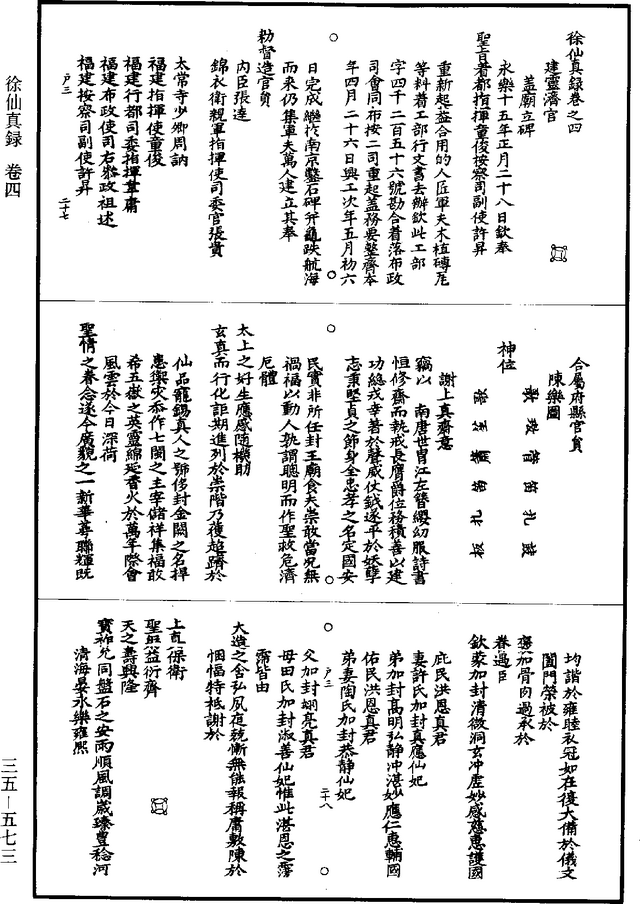 徐仙真録 卷四
三五—五七三
徐仙真録卷之四
建靈濟宮
蓋廟立碑
永樂十五年正月二十八日欽奉
聖旨着都指揮童俊按察司副使許昇
重新起蓋合用的人匠軍夫木植磚瓦
等料着工部行文書去辦欽此工部
字四千二百五十六號勘合着落布政
司會同布按二司重起蓋務要整齊本
年四月二十六日興工次年五月初六
日完成繼於南京鑿石碑并龜趺航海
而來仍集軍夫萬人建立其奉
勑督造官員
内臣張達
錦衣衛親軍指揮使司委官張貴
太常寺少卿周訥
福建指揮使童俊
福建行都司委指揮韋庸
福建布政使司右叅政祖述
福建按察司副使許昇
户三
二十七
合屬府縣官員
陳樂圖
神位
謝上真齋意
竊以 南唐世胄江左簪纓幼服詩書
恒修齋而執戒長膺爵位務積善以建
功總戎幸著於聲威仗鉞遂平於妖孽
志秉堅貞之節身全忠孝之名定國安
民實非所任封王廟食夫豈敢當况無
禍福以動人孰謂聰明而作聖救危濟
厄體
太上之好生應感隨機助
玄真而行化詎期進列於崇階乃復超躋於
仙品寵錫真人之號侈封金闕之名捍
患禦災忝作七閩之主宰儲祥集福敢
希五嶽之英靈綿延香火於萬年際會
風雲於今日深荷
聖情之眷念遂令廣貌之一新華萼聯輝既
均諧於雍睦衣冠如在復大備於儀文
閨門榮被於
褒加骨肉過承於
眷遇臣
欽蒙加封清微洞玄冲虚妙感慈惠護國
庇民洪恩真君
妻許氏加封真應仙妃
弟加封高明弘静冲湛妙應仁惠輔國
佑民洪恩真君
弟妻陶氏加封恭静仙妃
户三
二十八
父加封翊亮真君
母田氏加封淑善仙妃惟此湛恩之霈
霈皆由
大造之含弘夙夜兢慚無能報稱庸敷陳於
悃愊特祗謝於
上帝保衛
聖躬益衍齊
天之壽興隆
寶祚允同盤石之安雨順風調歲臻豐稔河
清海晏永樂雍熙